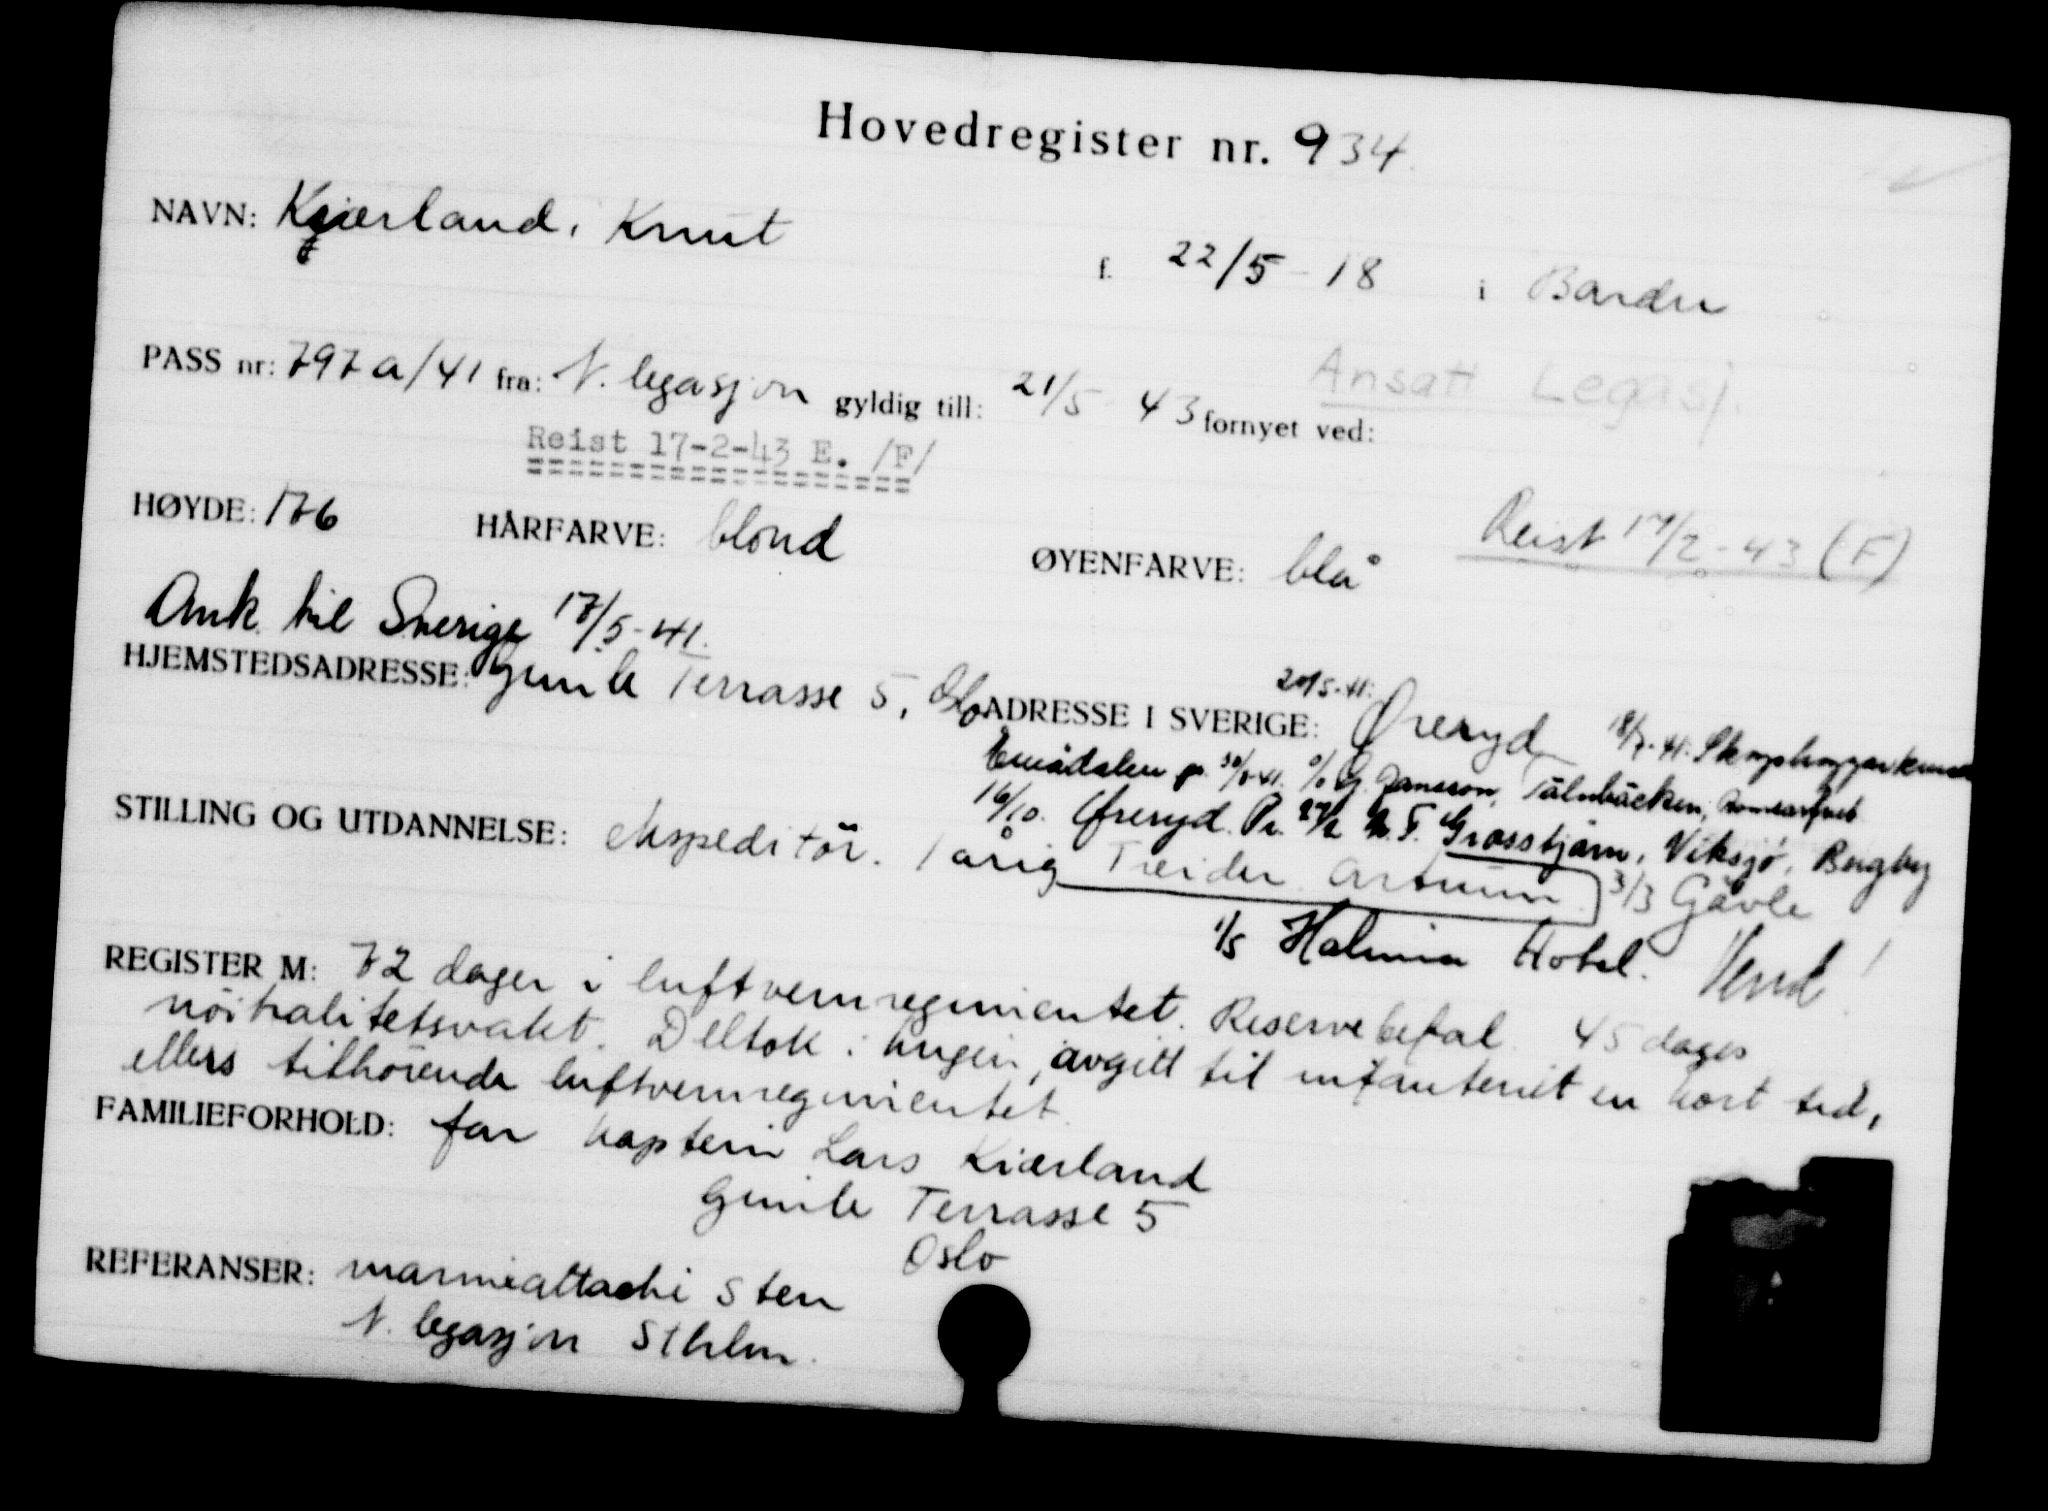 Hovedregister nr. 934
NAVN: Kjærland, Knut
f. 22/5 - 18 i Bardu
Ansatt Legasj.
PASS nr: 797a/41 fra: N. legasjon gyldig till: 21/5 43 fornyet ved:
Reist 17-2-43 E. /F/
HØYDE: 176 HÅRFARVE: blond ØYENFARVE: blå
Reist 17/2 - 43 (F)
Ank. til Sverige 17/5-41.
HJEMSTEDSADRESSE: Gimle Terrasse 5, Oslo
ADRESSE I SVERIGE: 20/5-41: Øreryd 18/7-41:
G. Jansson,
16/10. Øreryd. Pr. 27/2 Grosstjärn, Viksjö, Bergby
STILLING OG UTDANNELSE: ekspeditör. 1 årig Treider Artium
3/3 Gävle
1/5 Halmia Hotel. Vend!
REGISTER M: 72 dager i luftvernregimentet. Reservebefal 45 dages
nöitralitetsvakt. Deltok i krigen, avgitt til infanteriet en kort tid,
ellers tilhörende luftvernregimentet.
FAMILIEFORHOLD: far kaptein Lars Kiærland
Gimle Terrasse 5
Oslo
REFERANSER: marineattaché Sten
N. legasjon Sthlm.